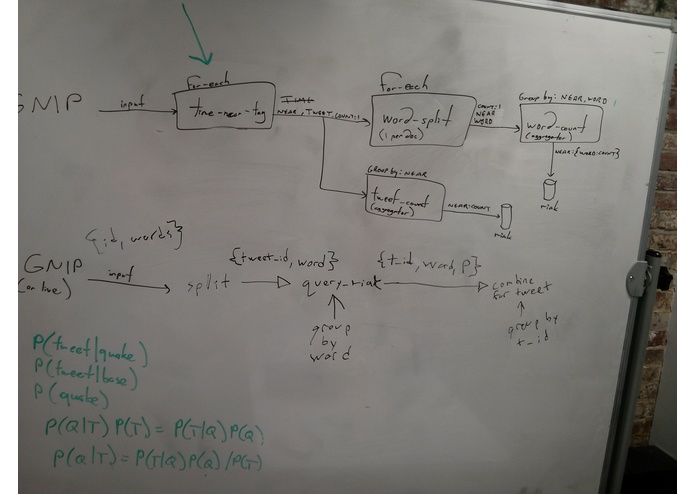 for-each
GNIP
input
time-near-tag
NEAR, TWEET, COUNT:1
for-each
word-split
(1 per doc)
COUNT:1
NEAR
WORD
Group by: NEAR, WORD
word-count
(aggregator)
NEAR:{WORD:COUNT}
riak
GROUP BY: NEAR
tweet-count
(aggregator)
NEAR:COUNT
riak
{id, words}
GNIP
(or live)
input
split
{tweet_id, word}
query-riak
group
by
word
{t_id, word, P}
combine
for tweet
group by
t_id
P(tweet|quake)
P(tweet|base)
P(quake)
P(Q|T) P(T) = P(T|Q) P(Q)
P(Q|T) = P(T|Q) P(Q) / P(T)